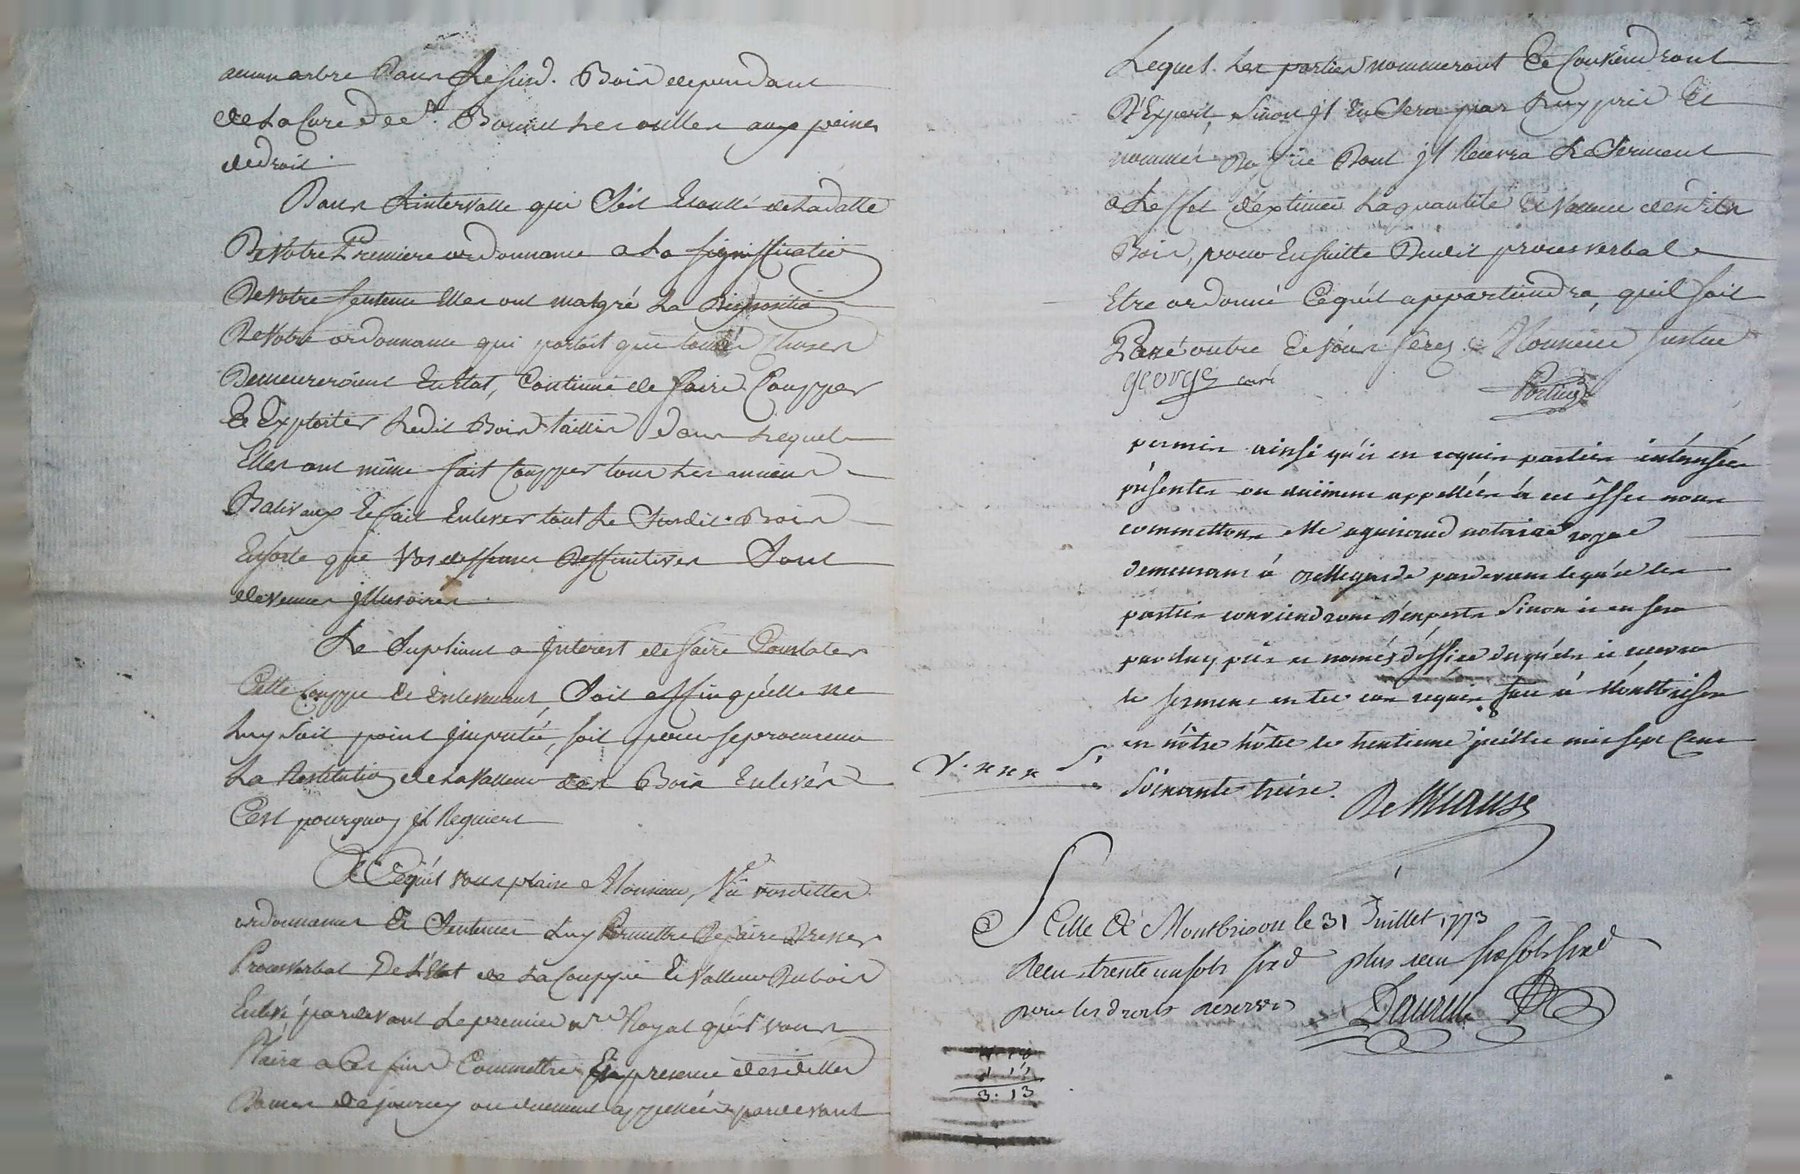 aucun arbre Dans Le susd. Bois dependant
de La Cure de St. Bonnet Les oulles aux peines
de droit.
Dans L'intervalle qui s'est Ecoullé de La datte
De Votre Premiere ordonnance a La signiffication
De Votre sentence Elles ont malgré La Disposition
De Votre ordonnance qui portoit que toutes Choses
Demeureroient En Etat, Continué de faire Coupper
Et Exploiter Ledit Bois taillis dans Lequel
Elles ont même fait Coupper tous Les anciens
Balivaux Et fait Enlever tout Le Susdit Bois
Ensorte que Vos deffenses Deffinitives Sont
devenues jllusoires.
Le Supliant a Interest de faire Constater
Cette Couppe Et Enlevement, Soit affin qu'elle ne
Luy soit point jmputée, soit pour se procurer
La Restitution de La Valleur des Bois Enlevés
C'est pourquoy jl Requiert
A Ce qu'il vous plaise Monsieur, Vu vosdittes
ordonnances Et Sentences Luy Permettre De faire Dresser
Procès verbal De L'Etat de La Couppe Et Valleur Du bois
Enlevé pardevant Le premier nre Royal qu'il vous
Plaira a Ces fins Commettre En presence desdittes
Dames de jourcey ou duement appellées pardevant
Lequel Les parties nommeront Et Conviendront
D'Expert, sinon jl En Sera par Luy pris Et
nommés D'office Dont jl Recevra Le Serment
a L'effet d'extimer La quantité Et Valeur desdits
Bois, pour Ensuitte Dudit procès verbal
Etre ordonné Ce qu'il appartiendra, qu'il soit
Passé outre Et vous ferez Monsieur Justice
george curé
permis ainsi qu'il en requis parties intéressées
présentes ou duëment appellées à cet éffet nous
commettons Me aguiraud notaire royal
demeurant à Bellegarde pardevant lequel les
parties conviendront d'experts Sinon il en sera
par luy pris et nommés d'office desquels il recevra
le serment en tel cas requis fait à Montbrison
en nôtre hôtel le trentieme juillet mil sept Cent
V. xxx s.
Soixante treise.
Scellé à Montbrison le 31 Juillet 1773
Reçu trente un sols six d plus reçu six sols six d
pour les droits reservés
3. 13